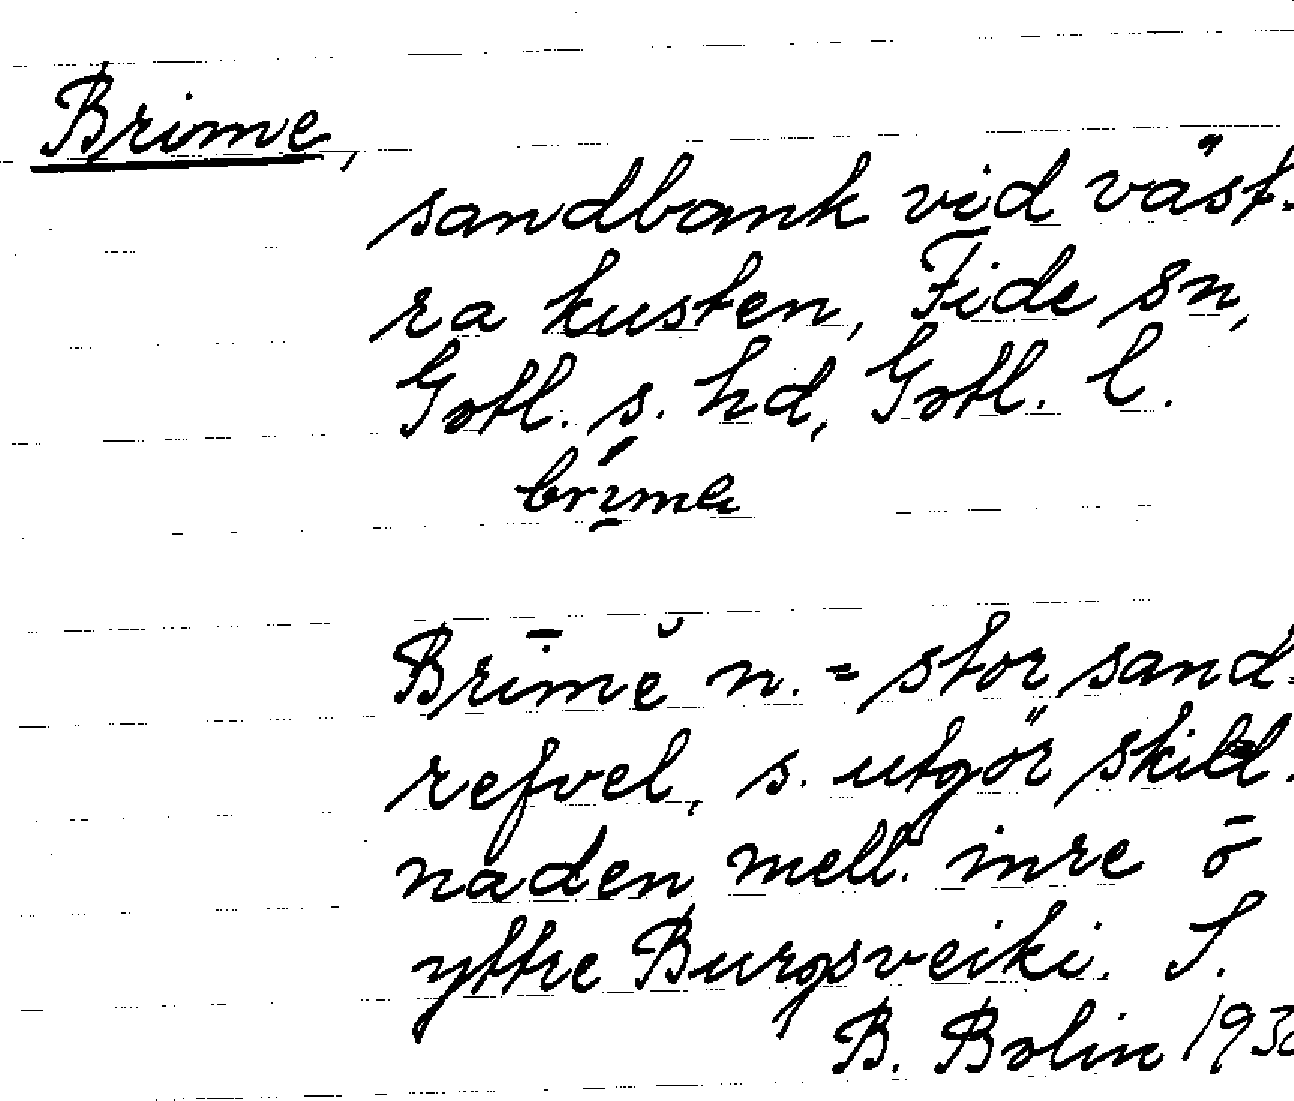 Brime,
sandbank vid väst-
ra kusten, Fide sn,
Gotl. s. hd, Gotl. l.
Brīmĕ n. = stor sand-
refvel, s. utgör skild-
naden mell. inre ō
yttre Burgsveiki. S.
B. Bolin